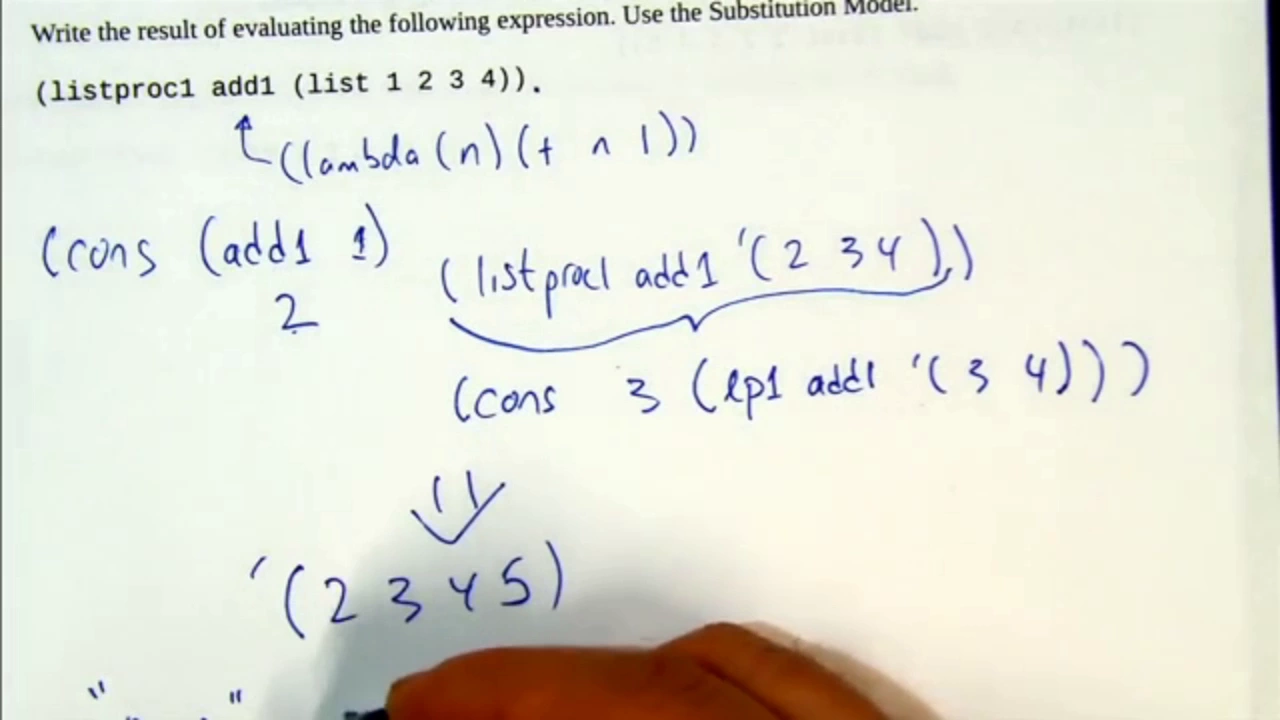 Write the result of evaluating the following expression. Use the Substitution Model.
(listproc1 add1 (list 1 2 3 4)).
((lambda (n) (+ n 1))
(cons (add1 1) (listproc1 add1 '(2 3 4)))
2
(cons 3 (lp1 add1 '(3 4)))
'(2 3 4 5)
" "